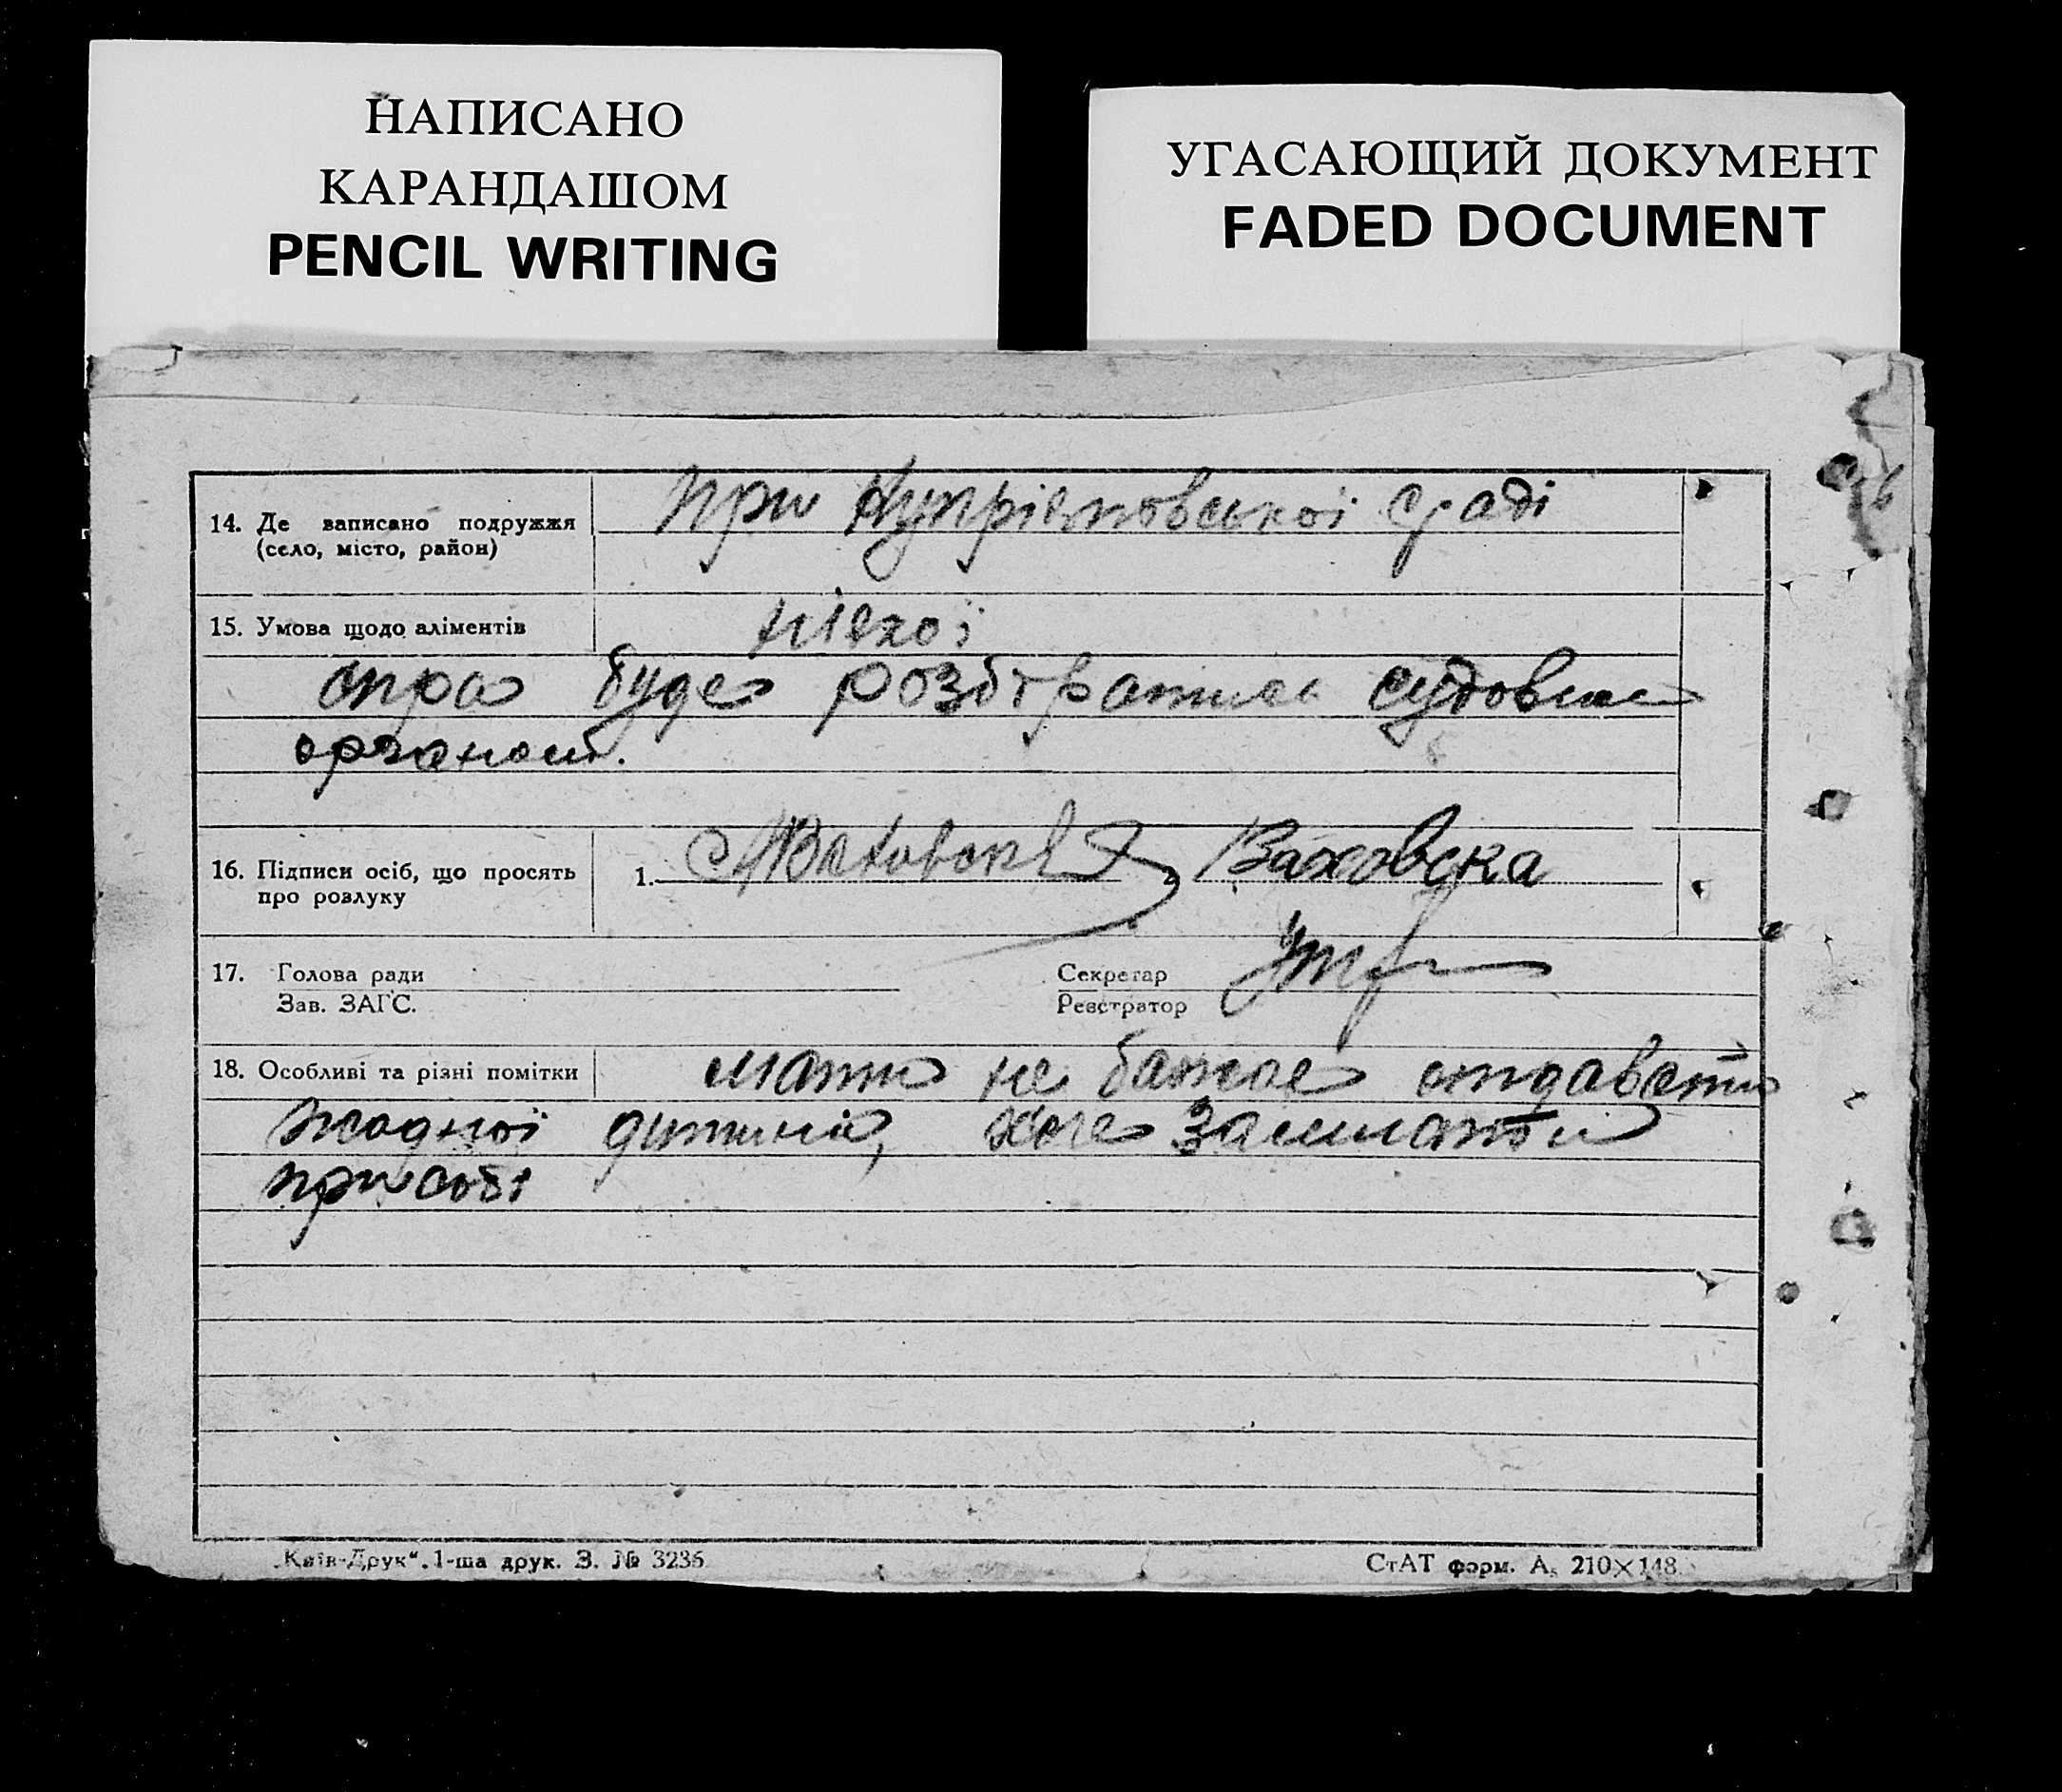 НАПИСАНО
КАРАНДАШОМ
PENCIL WRITING
УГАСАЮЩИЙ ДОКУМЕНТ
FADED DOCUMENT
14. Де записано подружжя
(село, місто, район)
при сраді
15. Умова щодо аліментів
ніякої
спра буде розбіратись судовим
органом.
16. Підписи осіб, що просять
про розлуку
1. Ваховска
17. Голова ради
Зав. ЗАГС.
Секретар
Реєстратор
18. Особливі та різні помітки
мати не бажає отдавати
жодної дитини, хоче
при собі
„Київ-Друк“. 1-ша друк. З. № 3236
СтАТ форм. А₅ 210×148